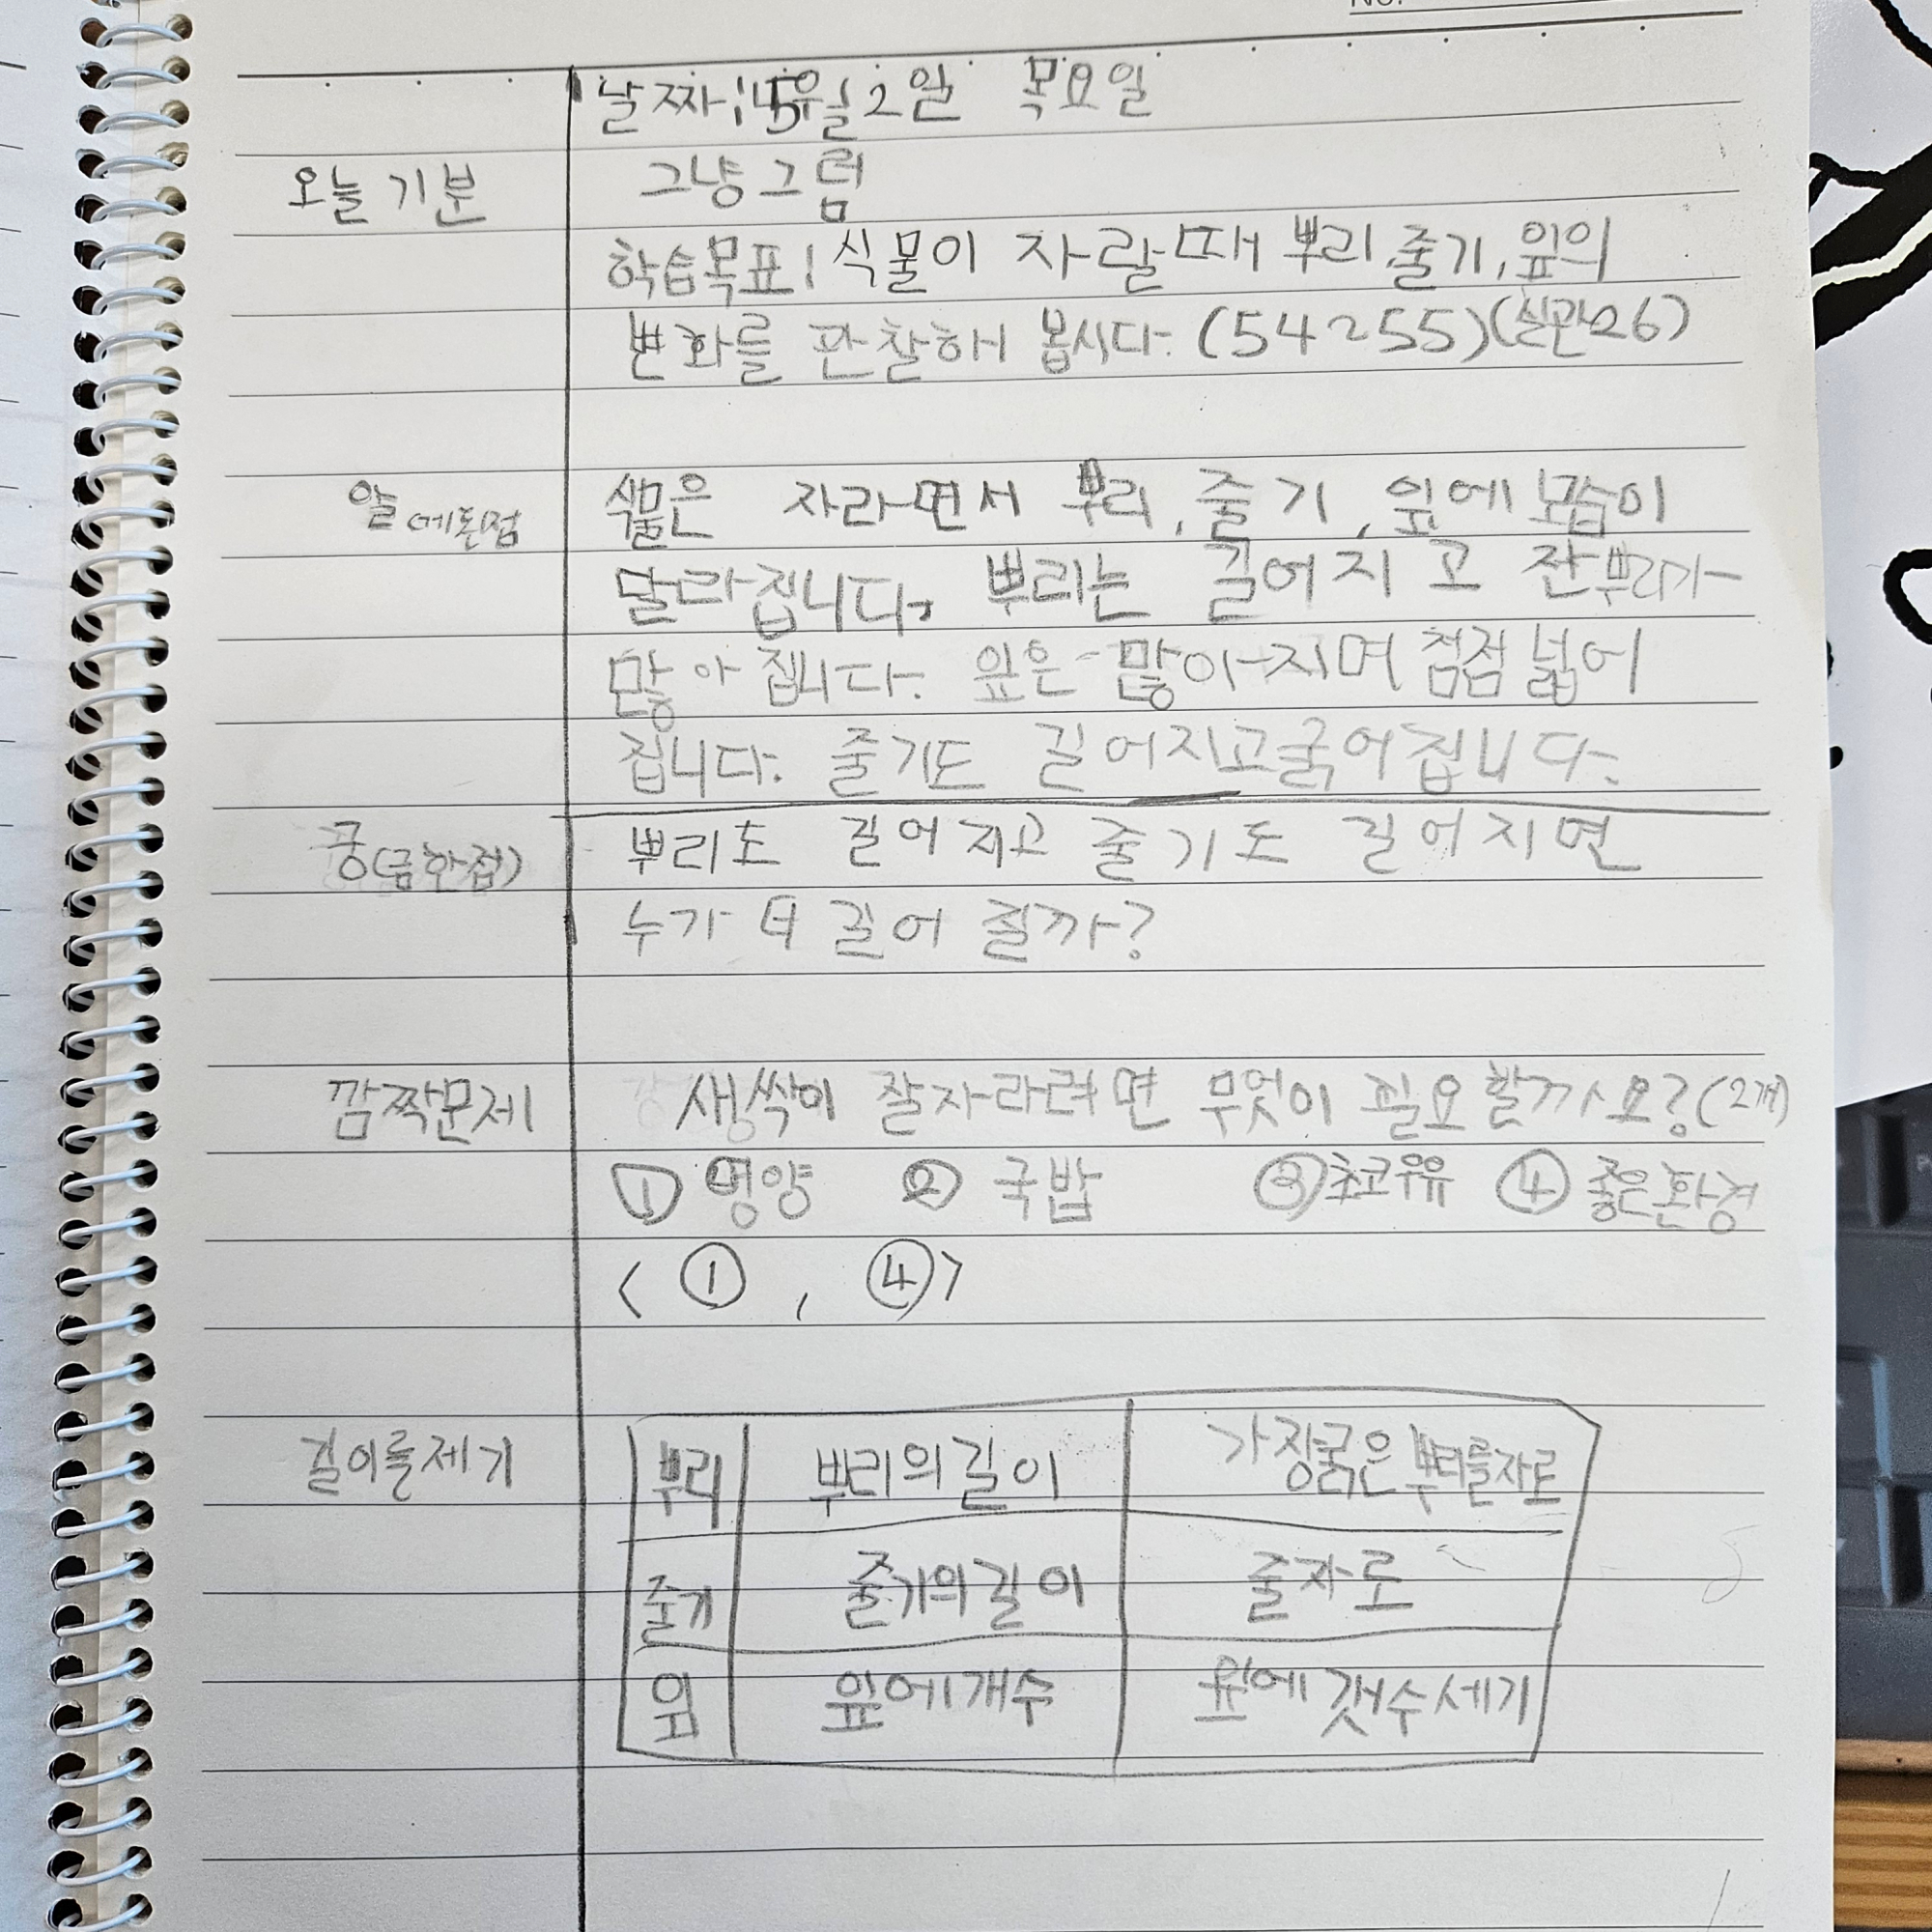 날짜: 5월 2일 목요일
오늘 기분 그냥그럼
학습목표: 식물이 자랄때 뿌리, 줄기, 잎의
변화를 관찰해 봅시다. (54~55)(실관26)
알게된점 식물은 자라면서 뿌리, 줄기, 잎에 모습이
달라집니다. 뿌리는 길어지고 잔뿌리가
많아집니다. 잎은 많아지며 점점 넓어
집니다. 줄기도 길어지고굵어집니다.
궁(금한점) 뿌리도 길어지고 줄기도 길어지면
누가 더 길어 질까?
깜짝문제 새싹이 잘자라려면 무엇이 필요할까요? (2개)
① 영양 ② 국밥 ③ 초코우유 ④ 좋은환경
< ① , ④ >
길이를제기 뿌리 뿌리의길이 가장굵은 뿌리를자로
줄기 줄기의길이 줄자로
잎 잎에개수 잎에 갯수세기